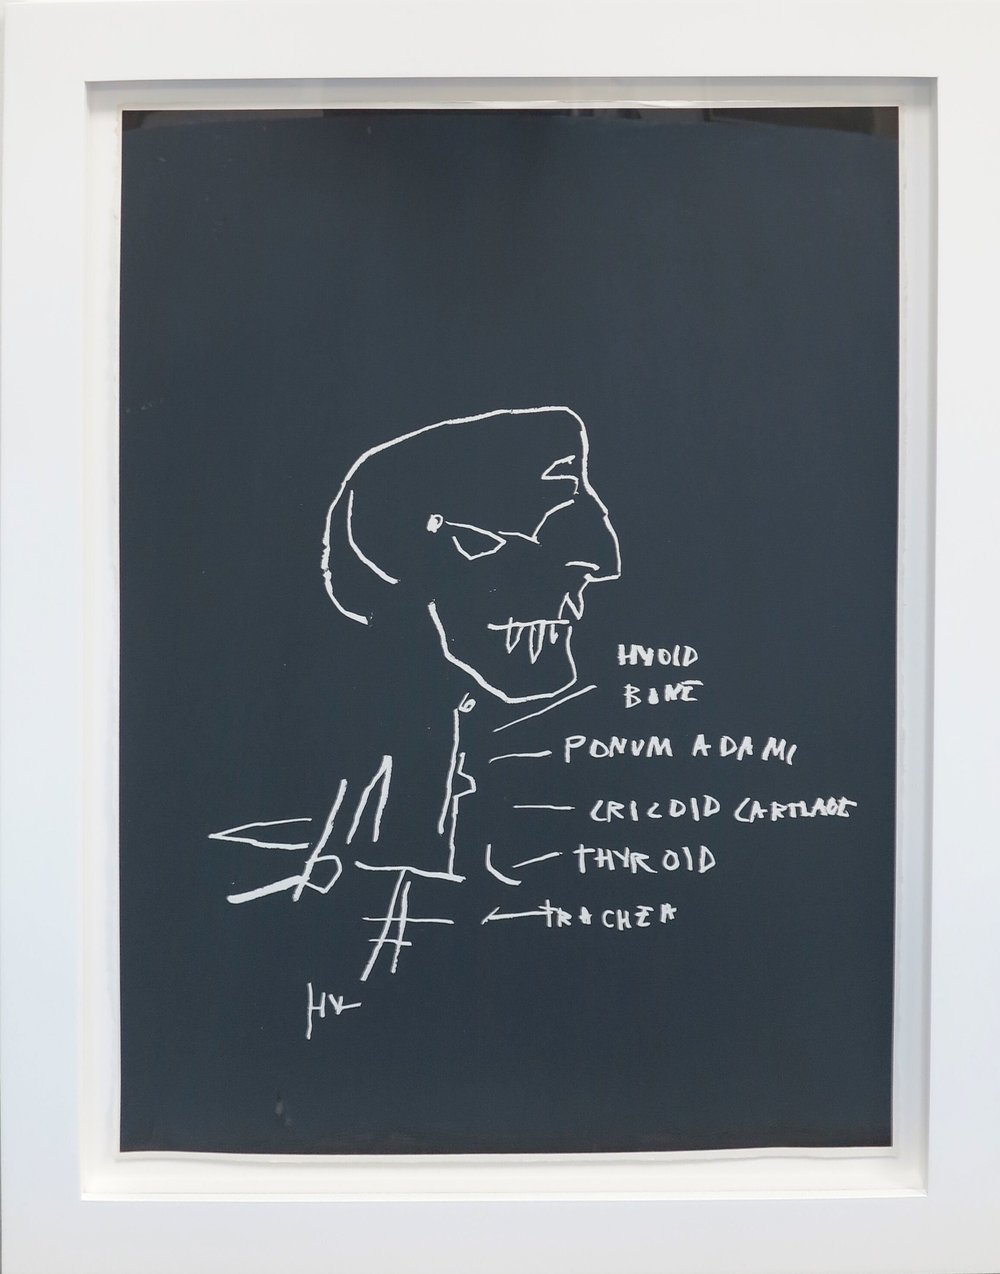 HYOID
BONE
PONUM ADAMI
CRICOID CARTLAGE
THYROID
TRACHEA